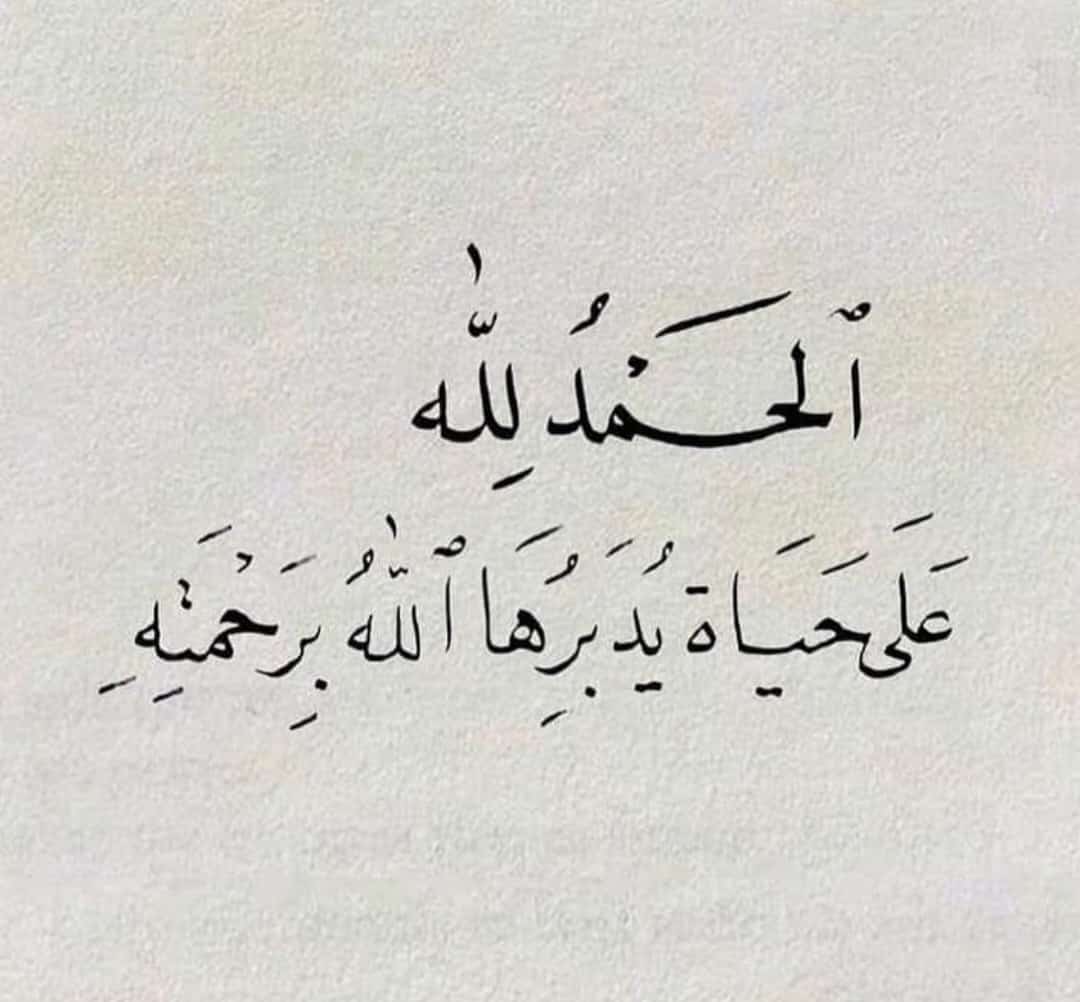 ٱلْحَمْدُ لِلّٰه
عَلَى حَيَاة يُدَبِرُهَا ٱللّٰهُ بِرَحْمَتِهِ